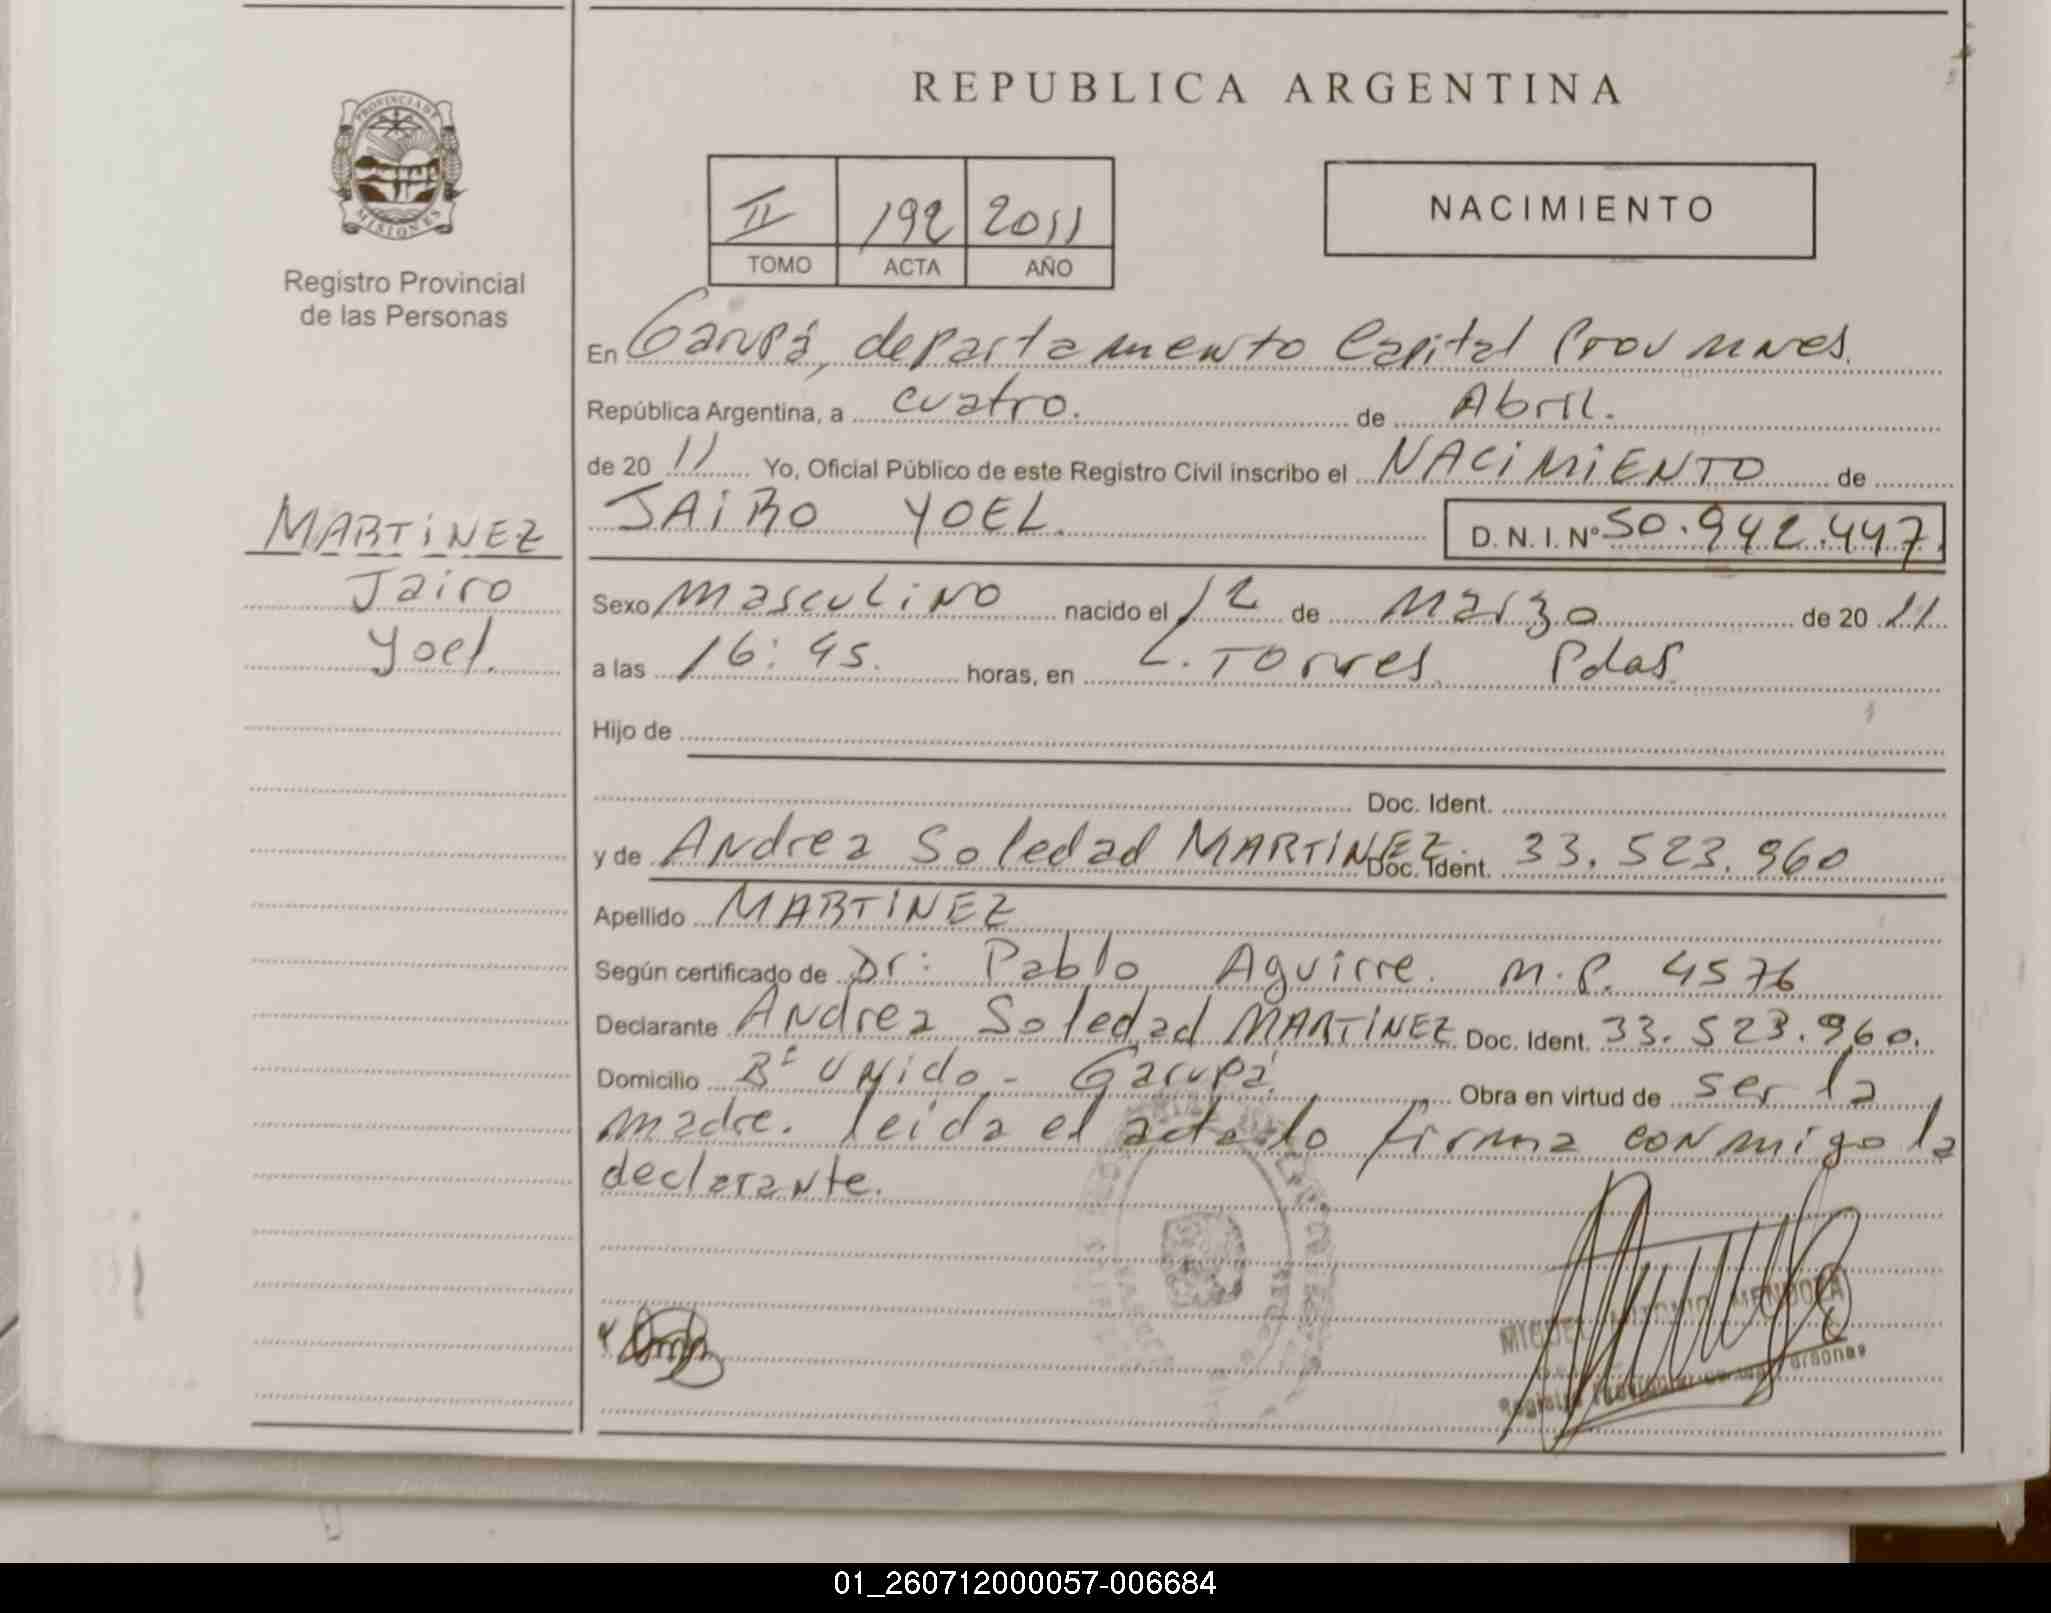 REPUBLICA ARGENTINA
PROVINCIA DE
MISIONES
Registro Provincial
de las Personas
II 192 2011
TOMO ACTA AÑO
NACIMIENTO
En Garupá, departamento Capital Prov mnes.
República Argentina, a cuatro. de Abril.
de 20 11 Yo, Oficial Público de este Registro Civil inscribo el NACIMIENTO de
MARTINEZ
Jairo
Yoel.
JAIRO YOEL. D. N. I. Nº 50.942.447.
Sexo masculino nacido el 12 de Marzo de 20 11
a las 16:45. horas, en L. Torres Pdas
Hijo de
Doc. Ident.
y de Andrea Soledad MARTINEZ. Doc. Ident. 33.523.960
Apellido MARTINEZ
Según certificado de Dr: Pablo Aguirre. M.P. 4576
Declarante Andrea Soledad MARTINEZ Doc. Ident. 33.523.960.
Domicilio Bº Unido - Garupá Obra en virtud de ser la
madre. leida el acta lo firma conmigo la
declarante.
MIGUEL ANTONIO MENDOZA
Registro Provincial de las Personas
01_260712000057-006684